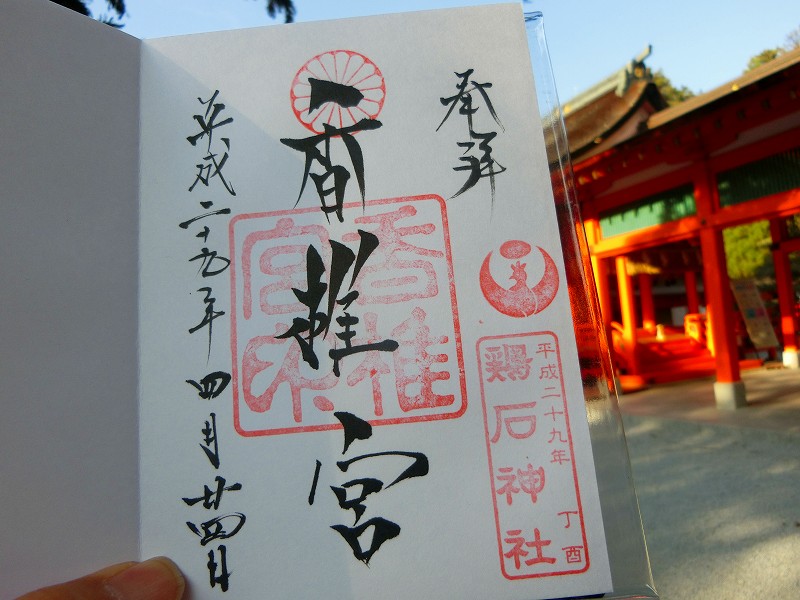 奉拝
香椎宮
平成二十九年四月廿四日
香椎
宮印
平成二十九年 丁酉
鶏石神社